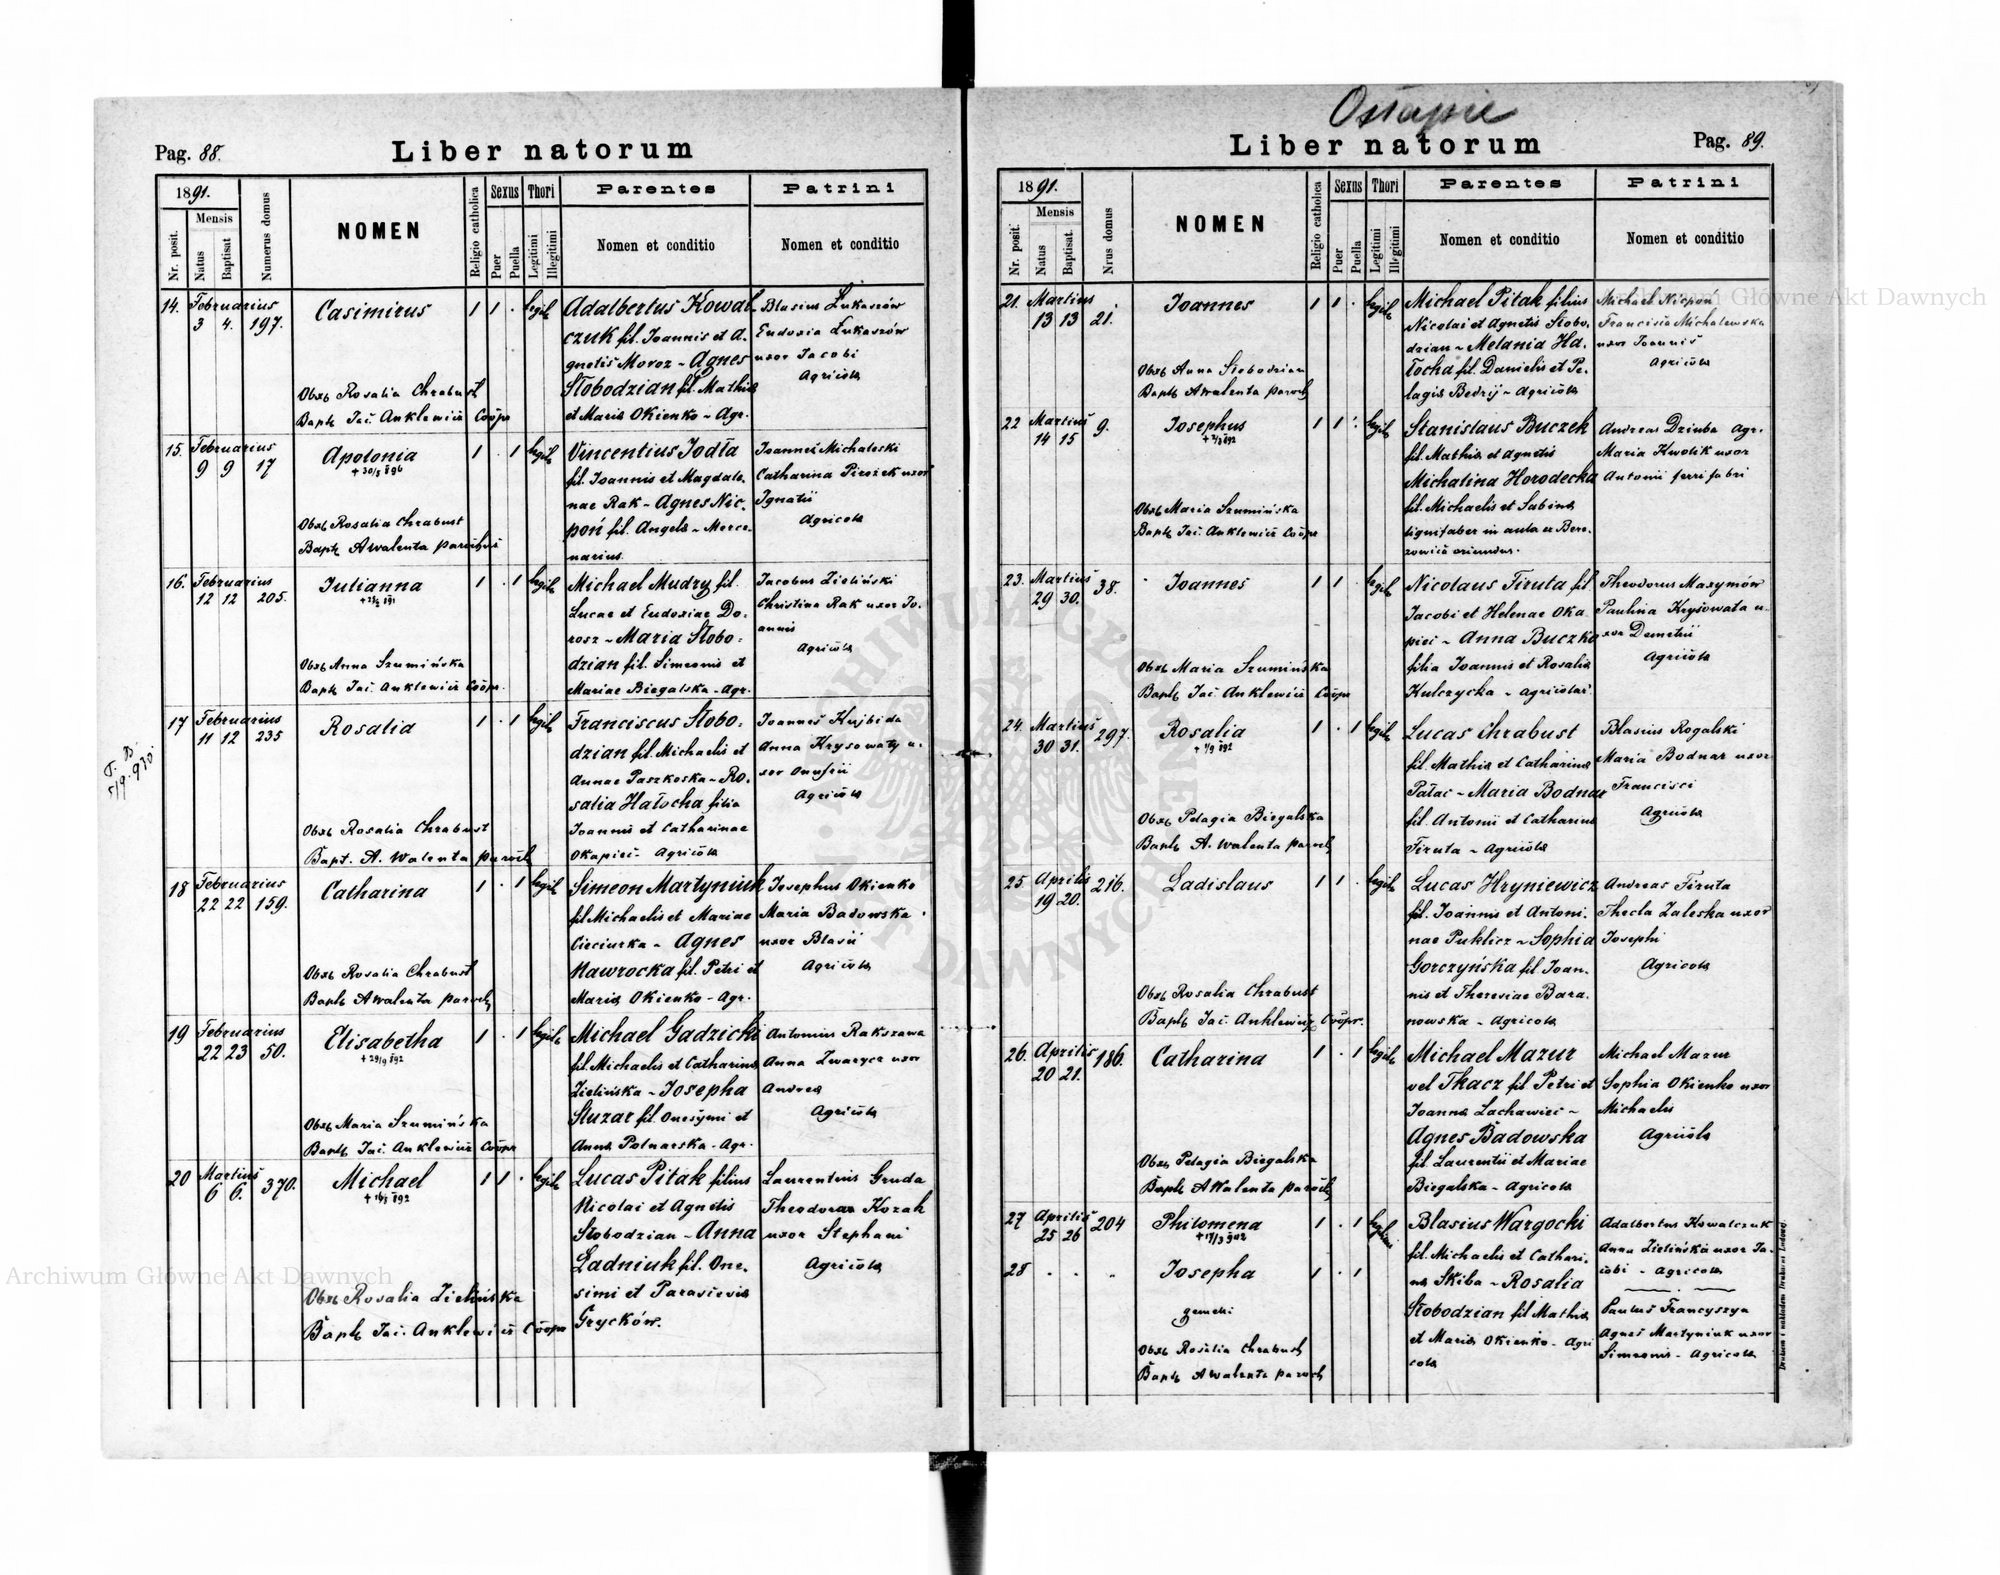 Ostapie
Pag. 88.
Liber natorum
1891.
Mensis
Nr. posit.
Natus
Baptisat
Numerus domus
NOMEN
Religio catholica
Sexus
Puer
Puella
Thori
Legitimi
Illegitimi
Parentes
Nomen et conditio
Patrini
Nomen et conditio
14. Februarius 3 4. 197.
Casimirus 1 1 . legit.
Obst. Rosalia Chrabust
Bapt. Jac. Anklewicz Coopr
Adalbertus Kowal-
czuk fil. Joannis et A-
gnetis Moroz - Agnes
Słobodzian fil. Mathiae
et Mariae Okienko - Agr.
Blasius Łukaszów
Eudoxia Łukaszów
uxor Jacobi
Agricolae
15. Februarius 9 9 17
Apolonia 1 . 1 legit.
+ 30/5 896
Obst. Rosalia Chrabust
Bapt. A Walenta parochus
Vincentius Jodła
fil. Joannis et Magdale-
nae Rak - Agnes Nic-
poń fil. Angelae - Merce-
narius.
Joannes Michalski
Catharina Pirożek uxor
Ignatii
Agricolae
16. Februarius 12 12 205.
Julianna 1 . 1 legit.
Obst. Anna Szumińska
Bapt. Jac. Anklewicz Coopr.
Michael Mudry fil.
Lucae et Eudoxiae Do-
rosz - Maria Słobo-
dzian fil. Simeonis et
Mariae Biegalska - Agr.
Jacobus Zieliński
Christina Rak uxor Jo-
annis
Agricolae
17 Februarius 11 12 235
Rosalia 1 . 1 legit.
Obst. Rosalia Chrabust
Bapt. A. Walenta paroch
Franciscus Słobo-
dzian fil. Michaelis et
Annae Paszkoska - Ro-
salia Hałocha filia
Joannis et Catharinae
Okapiec - Agricolae
Joannes Kujbida
Anna Krysowaty u-
xor Onufrii
Agricolae
18 Februarius 22 22 159.
Catharina 1 . 1 legit.
Obst. Rosalia Chrabust
Bapt. A Walenta paroch
Simeon Martyniuk
fil. Michaelis et Mariae
Cieciurka - Agnes
Nawrocka fil. Petri et
Mariae Okienko - Agr.
Josephus Okienko
Maria Badowska
uxor Blasii
Agricolae
19 Februarius 22 23 50.
Elisabetha 1 . 1 legit.
+ 29/9 892
Obst. Maria Szumińska
Bapt. Jac. Anklewicz Coopr
Michael Gadzicki
fil. Michaelis et Catharinae
Zielińska - Josepha
Sluzar fil. Onesymi et
Annae Polnarska - Agr.
Antonius Rakszawa
Anna Zwarycz uxor
Andreae
Agricolae
20 Martius 6 6. 370.
Michael 1 1 . legit.
Obst. Rosalia Zielińska
Bapt. Jac. Anklewicz Coopr
Lucas Pitak filius
Nicolai et Agnetis
Słobodzian - Anna
Ładniuk fil. One-
simi et Parasceviae
Gryćków.
Laurentius Gruda
Theodora Kozak
uxor Stephani
Agricolae
Pag. 89.
Liber natorum
1891.
Mensis
Nr. posit.
Natus
Baptisat.
Nrus domus
NOMEN
Religio catholica
Sexus
Puer
Puella
Thori
Legitimi
Illegitimi
Parentes
Nomen et conditio
Patrini
Nomen et conditio
21. Martius 13 13 21.
Joannes 1 1 . legit.
Obst. Anna Słobodzian
Bapt. A Walenta paroch
Michael Pitak filius
Nicolai et Agnetis Słobo-
dzian - Melania Ha-
łocha fil. Danielis et Pe-
lagiae Bedrij - Agricolae
Michael Nicpoń
Francisca Michalewska
uxor Joannis
Agricolae
22 Martius 14 15 9.
Josephus 1 1 . legit.
Obst. Maria Szumińska
Bapt. Jac. Anklewicz Coopr
Stanislaus Buczek
fil. Mathiae et Agnetis
Michalina Horodecka
fil. Michaelis et Sabinae
lignifaber in aula ex Bere-
zowica oriundus.
Andreas Dziuba Agr.
Maria Kwolik uxor
Antonii ferri fabri
23. Martius 29 30. 38.
Joannes 1 1 . legit.
Obst. Maria Szumińska
Bapt. Jac. Anklewicz Coopr
Nicolaus Tiruta fil
Jacobi et Helenae Oka-
piec - Anna Buczko
filia Joannis et Rosaliae
Kulczycka - agricolae
Theodorus Maxymów
Paulina Krysowata u-
xor Demetrii
Agricolae
24. Martius 30 31. 297.
Rosalia 1 . 1 legit.
+ 1/9 892
Obst. Pelagia Biegalska
Bapt. A. Walenta paroch
Lucas Chrabust
fil. Mathiae et Catharinae
Pałac - Maria Bodnar
fil. Antonii et Catharinae
Tiruta - Agricolae
Blasius Rogalski
Maria Bodnar uxor
Francisci
Agricolae
25. Aprilis 19 20. 216.
Ladislaus 1 1 . legit.
Obst. Rosalia Chrabust
Bapt. Jac. Anklewicz Coopr.
Lucas Hryniewicz
fil. Joannis et Antoni-
nae Puklicz - Sophia
Gorczyńska fil. Joan-
nis et Theresiae Bara-
nowska - Agricolae
Andreas Tiruta
Thecla Zaleska uxor
Josephi
Agricolae
26. Aprilis 20 21. 186.
Catharina 1 . 1 legit.
Obst. Pelagia Biegalska
Bapt. A Walenta paroch
Michael Mazur
vel Tkacz fil. Petri et
Joannae Lachawiec -
Agnes Badowska
fil. Laurentii et Mariae
Biegalska - Agricolae
Michael Mazur
Sophia Okienko uxor
Michaelis
Agricolae
27 Aprilis 25 26 204
Philomena 1 . 1 legitimi
+ 17/3 902
28 . . .
Josepha 1 . 1
gemelli
Obst. Rosalia Chrabust
Bapt. A Walenta paroch
Blasius Wargocki
fil. Michaelis et Cathari-
nae Skiba - Rosalia
Słobodzian fil Mathiae
et Mariae Okienko - Agri
colae
Adalbertus Kowalczuk
Anna Zielińska uxor Ja-
cobi - Agricolae
Paulus Francyszyn
Agnes Martyniuk uxor
Simeonis - Agricolae
Drukiem i nakładem Drukarni Ludowej.
Archiwum Główne Akt Dawnych
Archiwum Główne Akt Dawnych